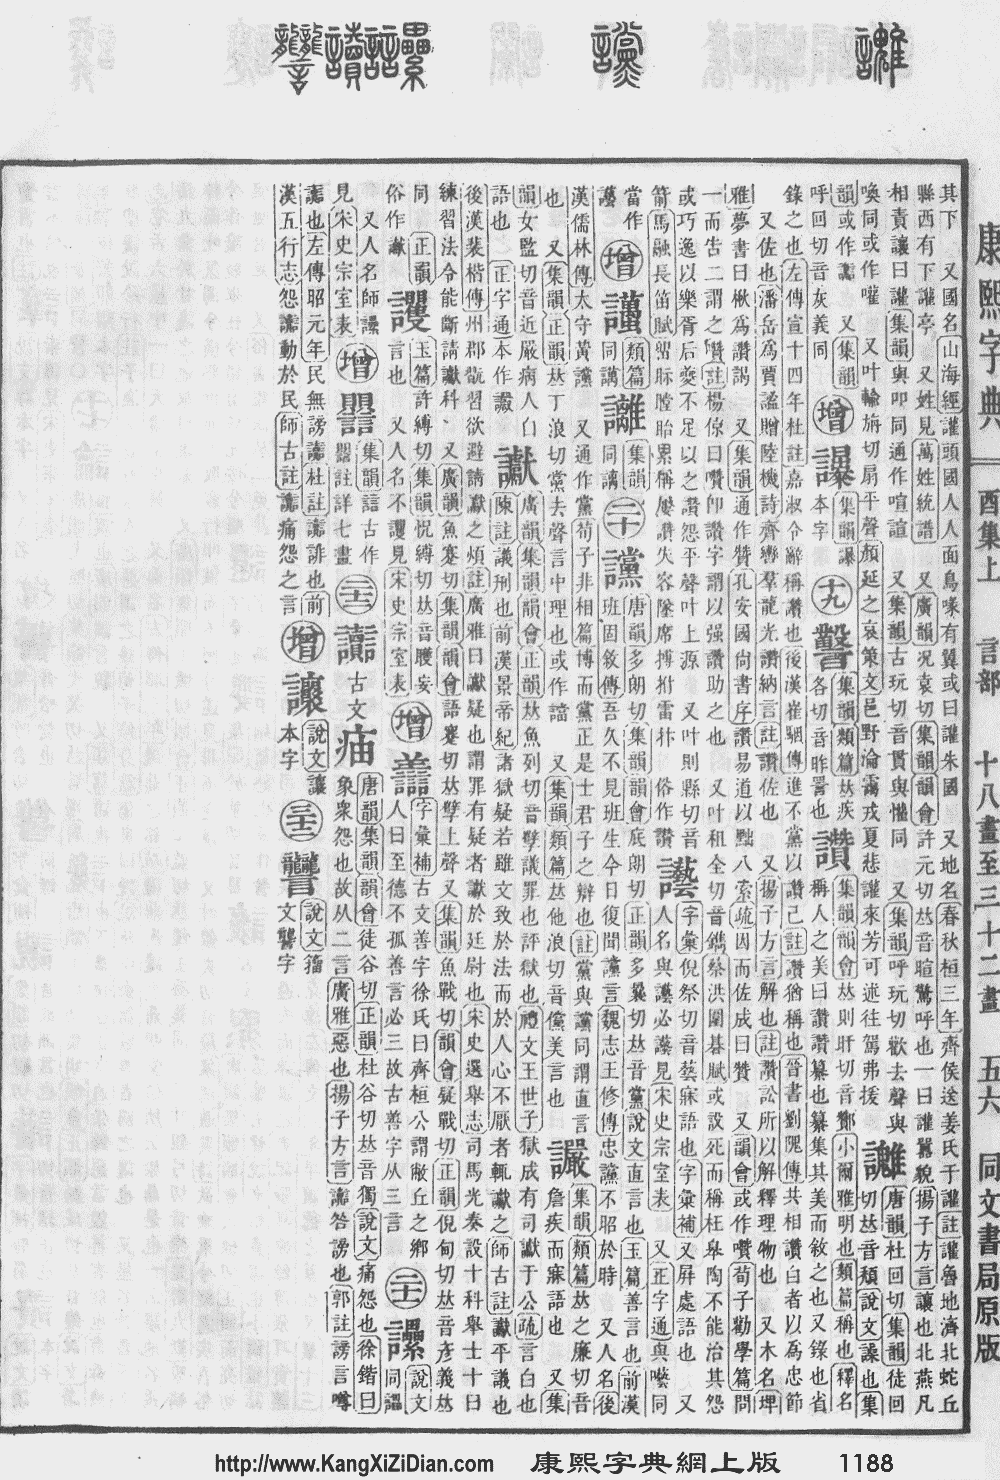 康熙字典 酉集上 言部 十八畫至三十二畫 五六 同文書局原版
其下 又國名山海經讙頭國人人面鳥喙有翼或曰讙朱國 又地名春秋桓三年齊侯送姜氏于讙註讙魯地濟北蛇丘
縣西有下讙亭 又姓見萬姓統譜 又廣韻况袁切集韻韻會許元切𠀤音暄驚呼也一曰讙囂貌揚子方言讓也北燕凡
相責讓曰讙集韻與吅同通作喧諠 又集韻古玩切音貫與懽同 又集韻呼玩切歡去聲與
喚同或作嚾 又叶輸旃切扇平聲顏延之哀策文邑野淪藹戎夏悲讙來芳可述往駕弗援 唐韻杜回切集韻徒回切𠀤音穨說文譟也集
韻或作 又集韻呼回切音灰義同 增 集韻 本字 十九 集韻類篇𠀤疾各切音昨詈也 讚 集韻韻會𠀤則肝切音酇小爾雅明也類篇稱也釋名
稱人之美曰讚讚纂也纂集其美而敘之也又錄也省
錄之也左傳宣十四年杜註嘉叔令辭稱讚也後漢崔駰傳進不黨以讚己註讚猶稱也晉書劉隗傳共相讚白者以為忠節
又佐也潘岳為賈謐贈陸機詩齊轡羣龍光讚納言註讚佐也 又揚子方言解也註讚訟所以解釋理物也 又木名埤
雅夢書曰楸為讚謁 又集韻通作贊孔安國尚書序讚易道以黜八索疏因而佐成曰贊 又韻會或作囋荀子勸學篇問
一而吿二謂之囋註楊倞曰囋卽讚字謂以强讚助之也 又叶租全切音鐫蔡洪圍碁賦或設死而稱枉臯陶不能治其怨
或巧逸以樂胥后夔不足以之讚怨平聲叶上源 又叶則縣切音 字彙倪祭切音藝寐語也字彙補又屛處語也 又
箭馬融長笛賦畱眎瞠眙累稱屢讚失容墜席搏拊雷抃 俗作讃 讛 人名與 必 見宋史宗室表 又正字通與囈同
當作 增 類篇同講 集韻同講 二十 讜 唐韻多朗切集韻韻會底朗切正韻多曩切𠀤音黨說文直言也玉篇善言也前漢
班固敘傳吾久不見班生今日復聞讜言魏志王修傳忠讜不昭於時 又人名後
漢儒林傳太守黃讜 又通作黨荀子非相篇博而黨正是士君子之辯也註黨與讜同謂直言
也 又集韻正韻𠀤丁浪切當去聲言中理也或作譡 又集韻類篇𠀤他浪切音儻美言也 讝 集韻類篇𠀤之廉切音詹疾而寐語也 又集
韻女監切音近嚴病人自語也 正字通本作 讞 廣韻集韻韻會正韻𠀤魚列切音孽議罪也評獄也禮文王世子獄成有司讞于公疏言白也
後漢裴楷傳州郡翫習欲避請讞之煩註廣雅曰讞疑也謂罪有疑者讞於廷尉也宋史選舉志司馬光奏設十科舉士十曰
練習法令能斷請讞科 又廣韻魚蹇切集韻韻會語蹇切𠀤孽上聲又集韻魚戰切韻會疑戰切正韻倪甸切𠀤音彥義𠀤
同 正韻俗作𤅊 玉篇許縛切集韻怳縛切𠀤音矍妄言也 又人名不 見宋史宗室表 增 譱 字彙補古文善字徐氏曰齊桓公謂敝丘之鄉
人曰至德不孤善言必三故古善字从三言 二十一 說文同讄
又人名師 見宋史宗室表 增 集韻誩古作 註詳七畫 二十二 讟 古文 唐韻集韻韻會徒谷切正韻杜谷切𠀤音獨說文痛怨也徐鍇曰
象衆怨也故从二言廣雅惡也揚子方言讟咎謗也郭註謗言噂
讟也左傳昭元年民無謗讟杜註讟誹也前
漢五行志怨讟動於民師古註讟痛怨之言 增 說文讓本字 三十二 說文籀文讋字
http://www.KangXiZiDian.com 康熙字典網上版 1188